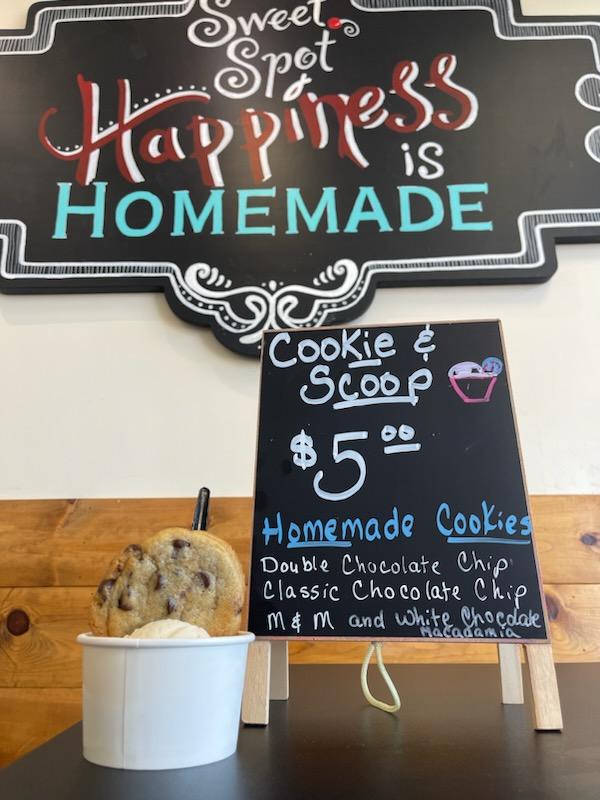 Sweet
Spot
Happiness
is
HOMEMADE
Cookie &
Scoop
$5.00
Homemade Cookies
Double Chocolate Chip
Classic Chocolate Chip
M & M and White Chocolate
Macadamia